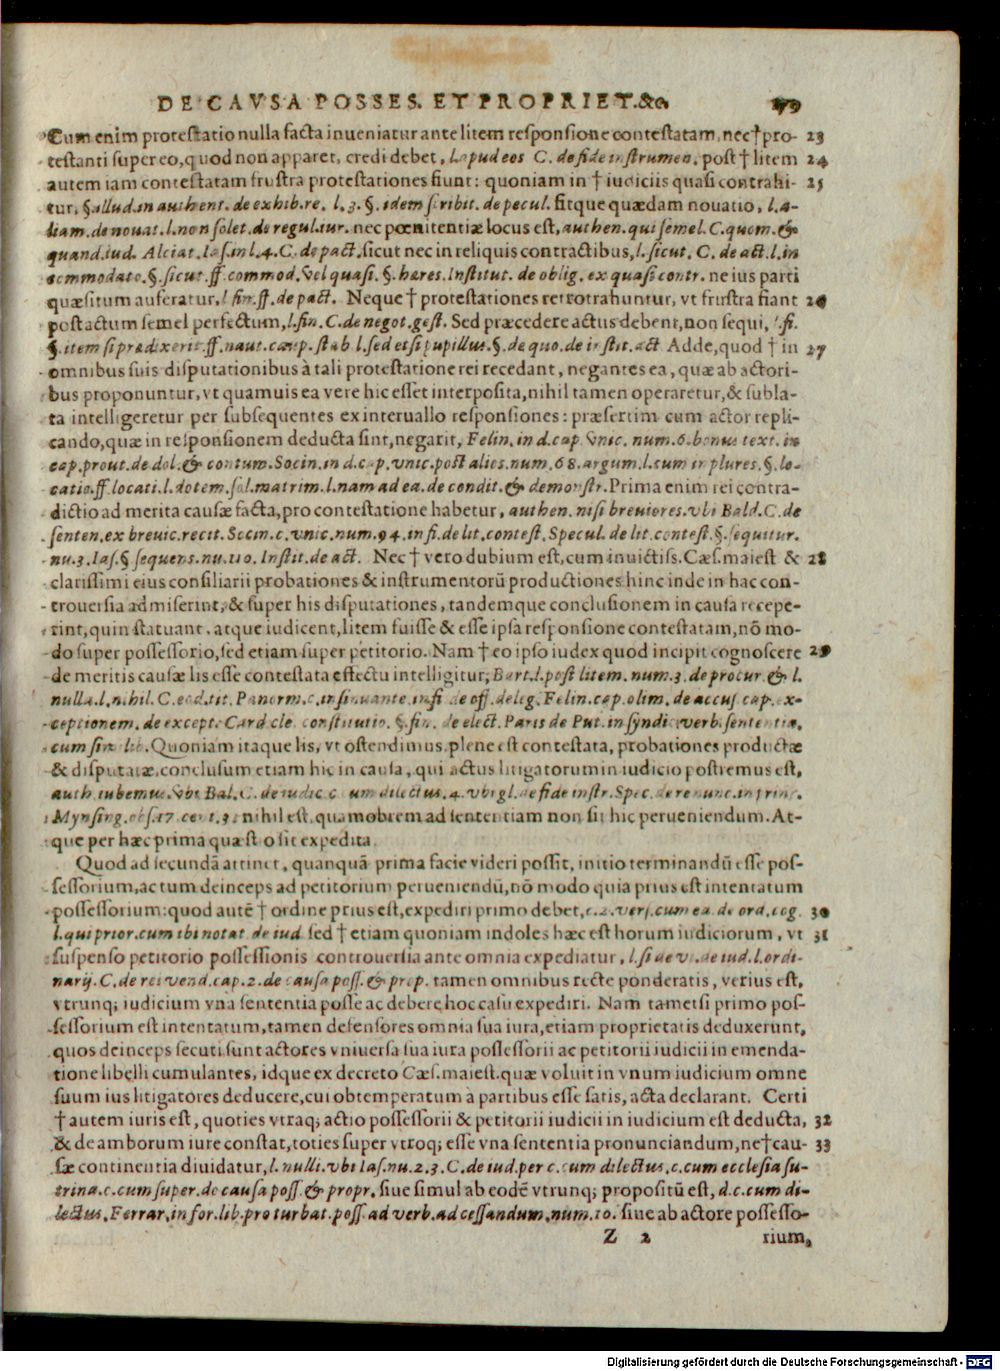 DE CAVSA POSSES. ET PROPRIET. &c. 179
Cum enim protestatio nulla facta inueniatur ante litem responsione contestatam, nec † pro- 23
testanti super eo, quod non apparet, credi debet, C. de fide instrumen. post † litem 24
autem iam contestatam frustra protestationes fiunt: quoniam in † iudiciis quasi contrahi- 25
tur, §. illud. in authent. de exhib. re. l. 3. §. idem scribit. de pecul. fitque quædam nouatio, l. a-
liam. de nouat. l. non solet. de regul. iur. nec pœnitentiæ locus est, authen. qui semel. C. quom. &
quand. iud. Alciat. Ias. in l. 4. C. de pact. sicut nec in reliquis contractibus, l. sicut. C. de act. l. in
commodato. §. sicut. ff. commod. vel quasi. §. hæres. Institut. de oblig. ex quasi contr. ne ius parti
quæsitum auferatur, l. fin. ff. de pact. Neque † protestationes retrotrahuntur, vt frustra fiant 26
post actum semel perfectum, l. fin. C. de negot. gest. Sed præcedere actus debent, non sequi, l. si.
§. item si prædixerit. ff. naut. caup. stab. l. sed et si pupillus. §. de quo. de instit. act. Adde, quod † in 27
omnibus suis disputationibus à tali protestatione rei recedant, negantes ea, quæ ab actori-
bus proponuntur, vt quamuis ea vere hic esset interposita, nihil tamen operaretur, & subla-
ta intelligeretur per subsequentes ex interuallo responsiones: præsertim cum actor repli-
cando, quæ in responsionem deducta sint, negarit, Felin. in d. cap. vnic. num. 6. bonus text. in
cap. prout. de dol. & contum. Socin. in d. cap. vnic. post alios. num. 68. argum. l. cum in plures. §. lo-
catio. ff. locati. l. dotem. sol. matrim. l. nam ad ea. de condit. & demonstr. Prima enim rei contra-
dictio ad merita causæ facta, pro contestatione habetur, authen. nisi breuiores. vbi Bald. C. de
senten. ex breuic. recit. Socin. c. vnic. num. 94. in fi. de lit. contest. Specul. de lit. contest. §. sequitur.
nu. 3. Ias. §. sequens. nu. 110. Instit. de act. Nec † vero dubium est, cum inuictiss. Cæs. maiest. & 28
clarissimi eius consiliarii probationes & instrumentorū productiones hinc inde in hac con-
trouersia admiserint, & super his disputationes, tandemque conclusionem in causa recepe-
rint, quin statuant, atque iudicent, litem fuisse & esse ipsa responsione contestatam, nō mo-
do super possessorio, sed etiam super petitorio. Nam † eo ipso iudex quod incipit cognoscere 29
de meritis causæ lis esse contestata effectu intelligitur, Bart. l. post litem. num. 3. de procur. & l.
nulla. l. nihil. C. eod. tit. Panorm. c. insinuante. in fi. de off. deleg. Felin. cap. olim. de accus. cap. ex-
ceptionem. de except. Card. cle. constitutio. §. fin. de elect. Paris de Put. in syndi. verb. sententiæ,
cum sin. lit. Quoniam itaque lis, vt ostendimus, plene est contestata, probationes productæ
& disputatæ, conclusum etiam hic in causa, qui actus litigatorum in iudicio postremus est,
auth. iubemus. vbi Bal. C. de iudic. c. cum dilectus. 4. vbi gl. de fide instr. Spec. de renunc. in princ.
Mynsing. obs. 17. cent. 3. nihil est, quamobrem ad sententiam non sit hic perueniendum. At-
que per hæc prima quæstio sit expedita.
Quod ad secundā attinet, quanquā prima facie videri possit, initio terminandū esse pos-
sessorium, ac tum deinceps ad petitorium perueniendū, nō modo quia prius est intentatum
possessorium: quod autē † ordine prius est, expediri primo debet, c. 2. vers. cum ea. de ord. cog. 30
l. qui prior. cum ibi notat. de iud. sed † etiam quoniam indoles hæc est horum iudiciorum, vt 31
suspenso petitorio possessionis controuersia ante omnia expediatur, l. si de vi. de iud. l. ordi-
narij. C. de rei vend. cap. 2. de causa poss. & prop. tamen omnibus recte ponderatis, verius est,
vtrunq; iudicium vna sententia posse ac debere hoc casu expediri. Nam tametsi primo pos-
sessorium est intentatum, tamen defensores omnia sua iura, etiam proprietatis deduxerunt,
quos deinceps secuti sunt actores vniuersa sua iura possessorii ac petitorii iudicii in emenda-
tione libelli cumulantes, idque ex decreto Cæs. maiest. quæ voluit in vnum iudicium omne
suum ius litigatores deducere, cui obtemperatum à partibus esse satis, acta declarant. Certi
† autem iuris est, quoties vtraq; actio possessorii & petitorii iudicii in iudicium est deducta, 32
& de amborum iure constat, toties super vtroq; esse vna sententia pronunciandum, ne † cau- 33
sæ continentia diuidatur, l. nulli. vbi Ias. nu. 2. 3. C. de iud. per c. cum dilectus, c. cum ecclesia su-
trina. c. cum super. de causa poss. & propr. siue simul ab eodē vtrunq; propositū est, d. c. cum di-
lectus. Ferrar. in for. lib. pro turbat. poss. ad verb. ad cessandum. num. 10. siue ab actore possesso-
Z 2 rium,
Digitalisierung gefördert durch die Deutsche Forschungsgemeinschaft - DFG